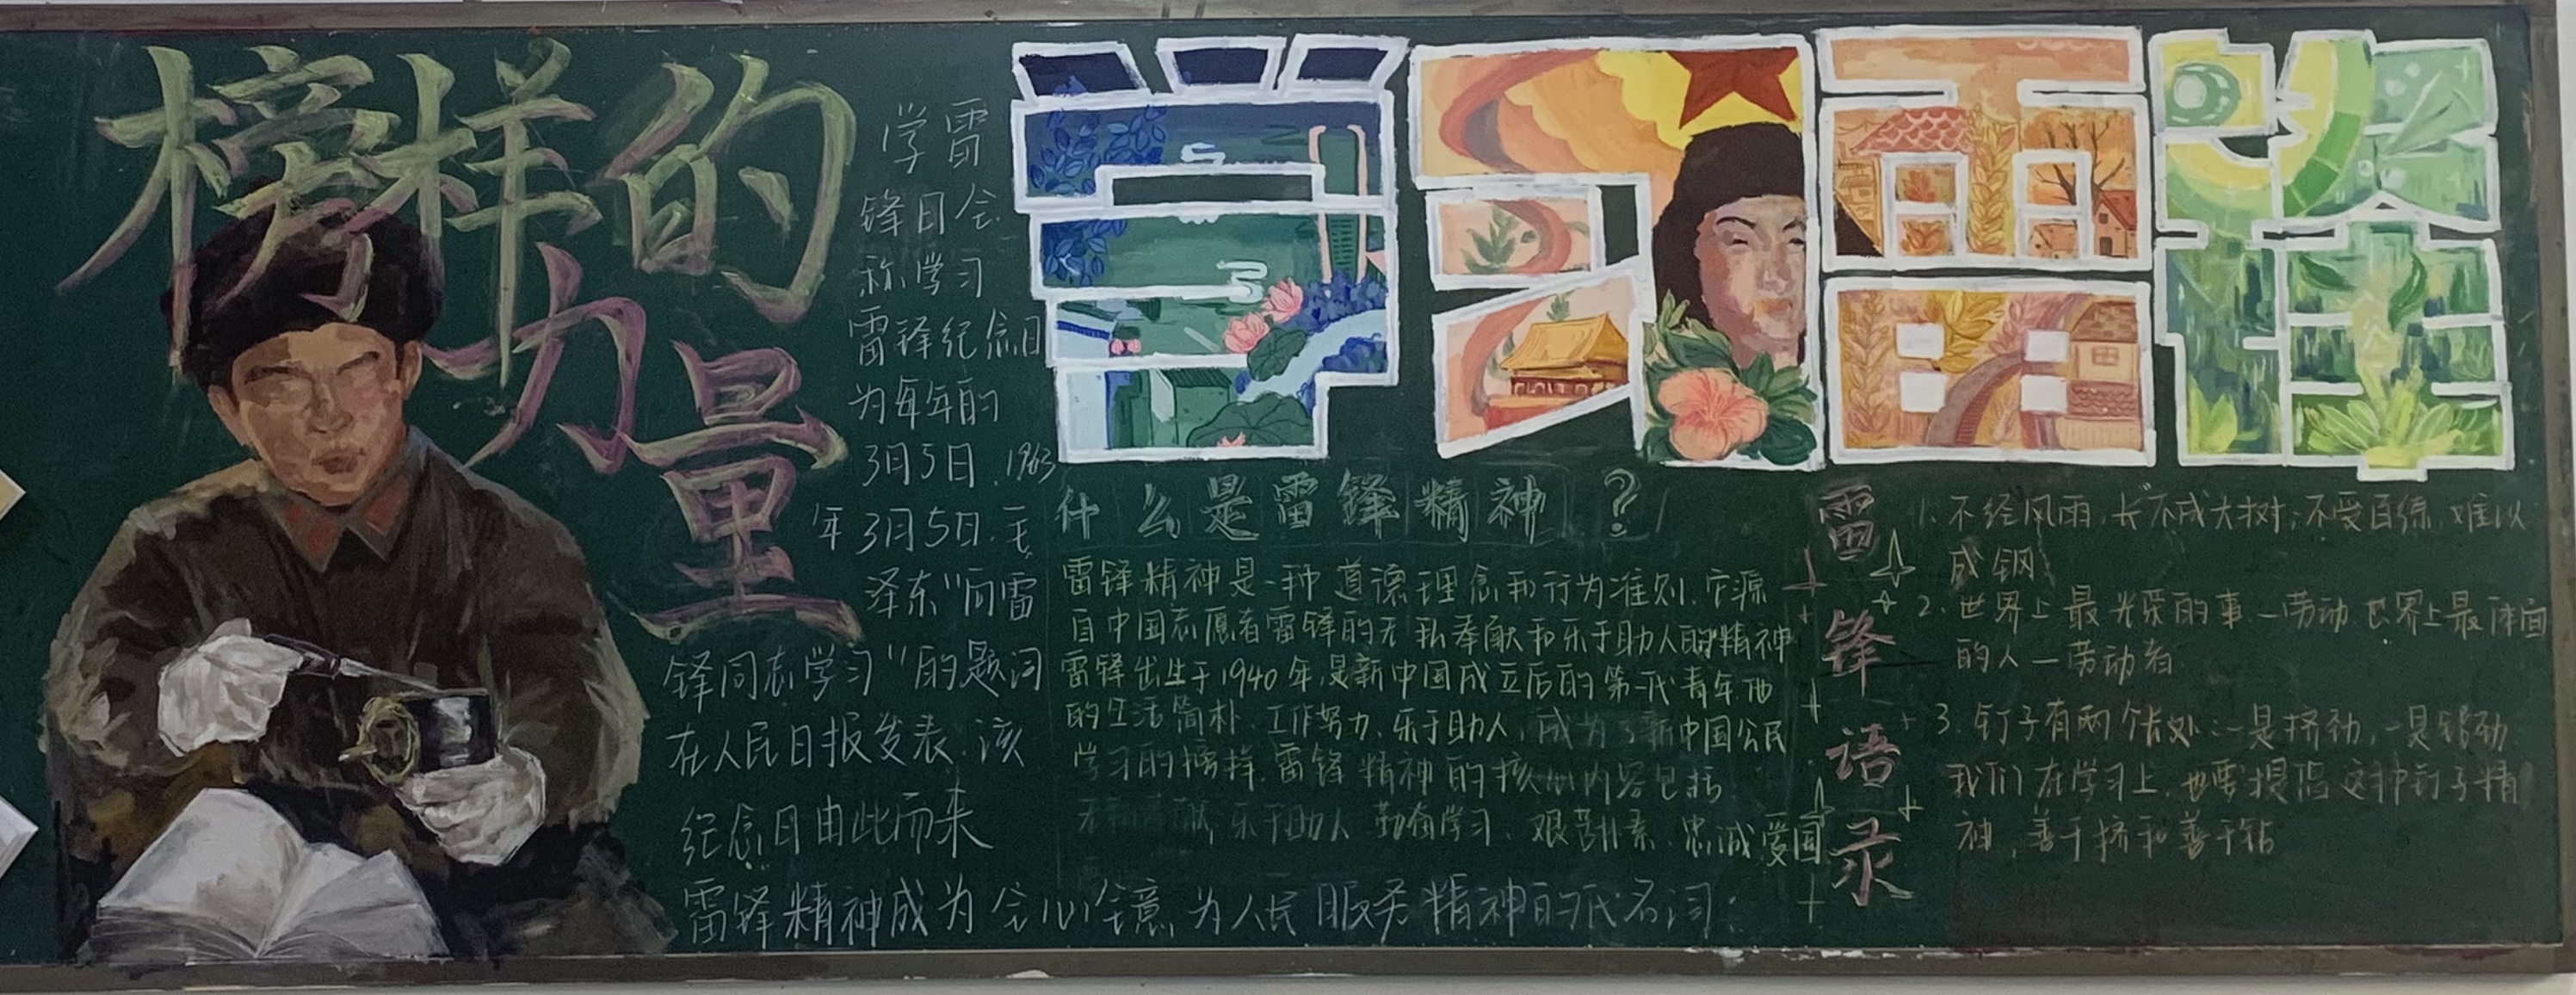 榜样的
力量
学雷
锋日全
称学习
雷锋纪念日
为每年的
3月5日.1963
年3月5日.毛
泽东“向雷
锋同志学习”的题词
在人民日报发表.该
纪念日由此而来
雷锋精神成为全心全意为人民服务精神的代名词.
学习雷锋
什么是雷锋精神？
雷锋精神是一种道德理念和行为准则.它源
自中国志愿者雷锋的无私奉献和乐于助人的精神
雷锋出生于1940年,是新中国成立后的第一代青年他
的生活简朴.工作努力.乐于助人,成为了新中国公民
学习的榜样.雷锋精神的核心内容包括
无私奉献,乐于助人 勤奋学习、艰苦朴素、忠诚爱国
雷锋语录
1.不经风雨,长不成大树;不受百练,难以
成钢
2.世界上最光荣的事—劳动.世界上最体面
的人—劳动者.
3.钉子有两个长处:一是挤劲,一是钻劲
我们在学习上,也要提倡这种钉子精
神,善于挤和善于钻